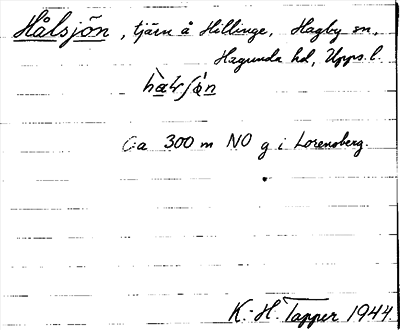 Hålsjön, tjärn å Hillinge, Hagby sn,
Hagunda hd, Upps. l.
Ca 300 m NO g i Lorensberg.
K.-H. Tapper 1944.